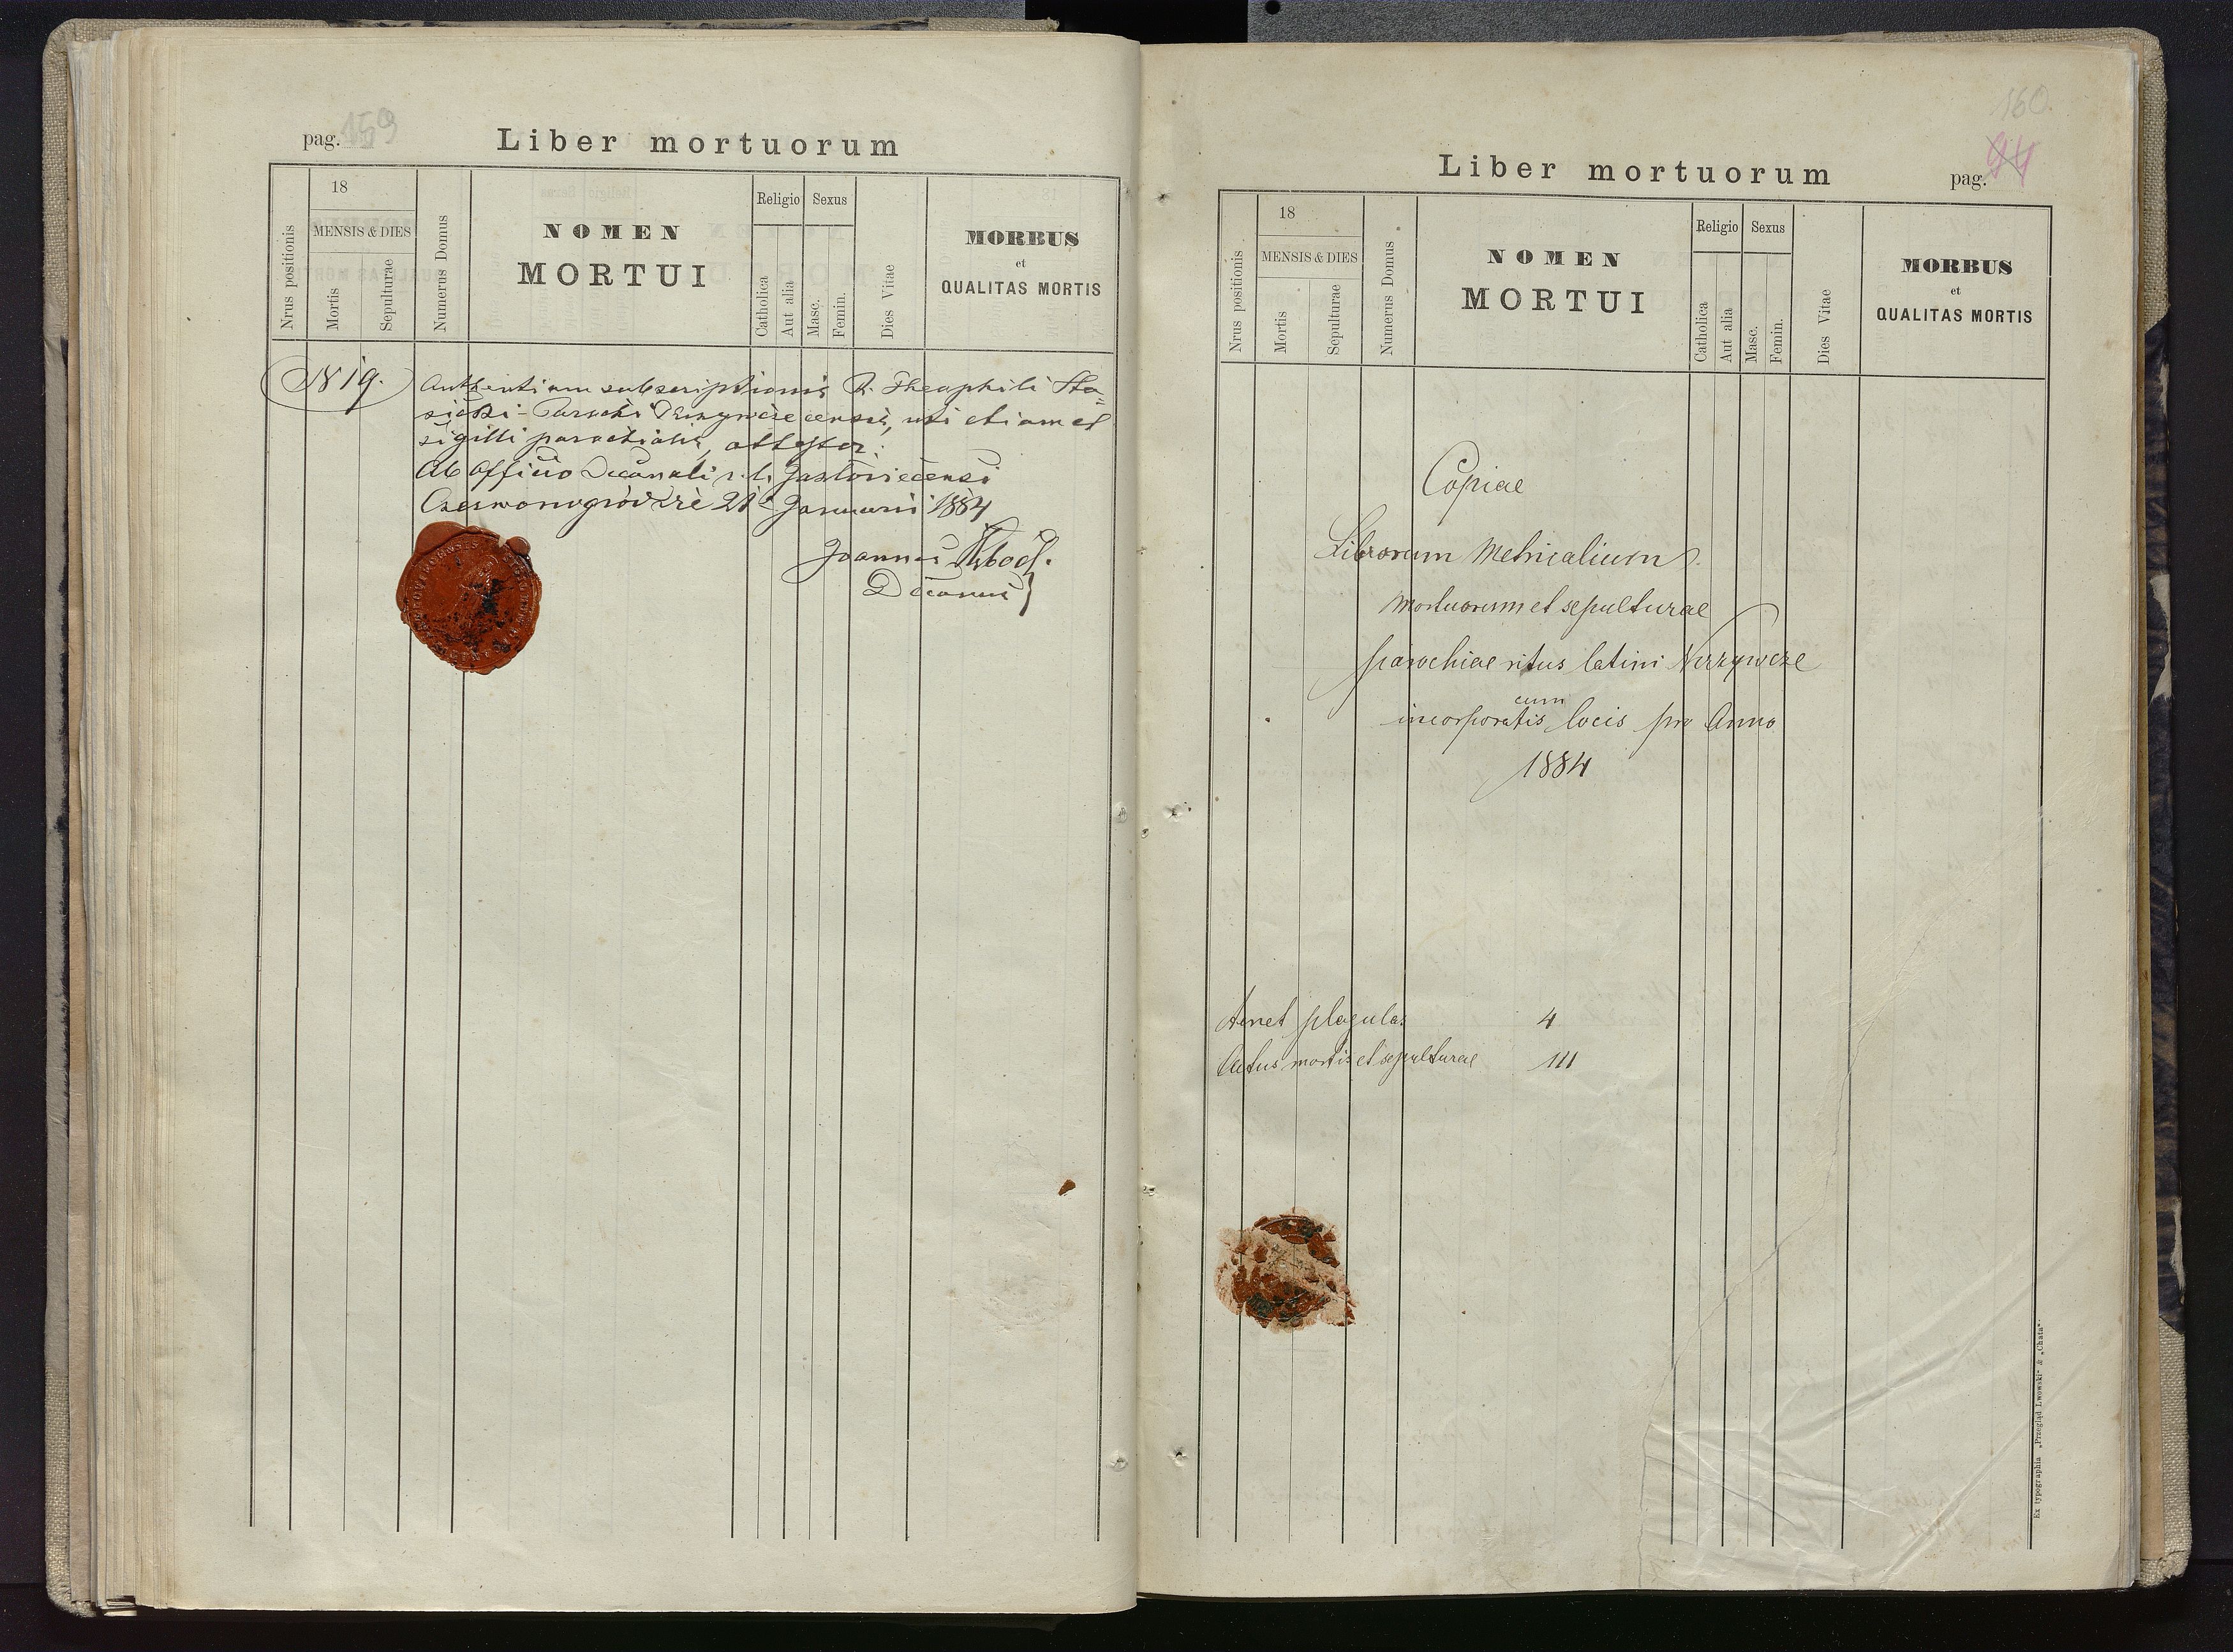 pag. 159
Liber mortuorum
Nrus positionis
18
MENSIS & DIES
Mortis
Sepulturae
Numerus Domus
NOMEN
MORTUI
Religio
Catholica
Aut alia
Sexus
Masc.
Femin.
Dies Vitae
MORBUS
et
QUALITAS MORTIS
N 19.
subscriptionis R. Theophili Sta=
sicki Parochi, uti etiam et
sigilli parochialis, attestor.
Ab Officio Decanali r. l. Jasloviecensi
21 Januarii 1884
Joannes
Decanus
160.
94
Liber mortuorum
pag.
Nrus positionis
18
MENSIS & DIES
Mortis
Sepulturae
Numerus Domus
NOMEN
MORTUI
Religio
Catholica
Aut alia
Sexus
Masc.
Femin.
Dies Vitae
MORBUS
et
QUALITAS MORTIS
Copiae
Librorum Metricalium
mortuorum et sepulturae
parochiae ritus latini
cum
incorporatis locis pro Anno
1884
plagulas 4
Actus mortis et sepulturae 111
Ex typographia „Przegląd Lwowski“ & „Chata“.